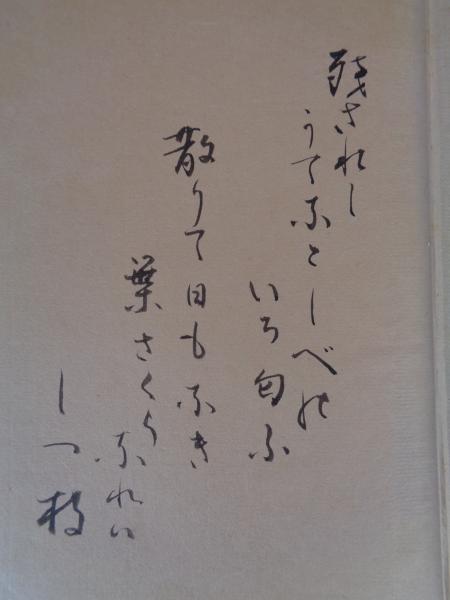 残されし
うてなとしべの
いろ匂ふ
散りて日もなき
葉さくら
なれハ
しつ枝